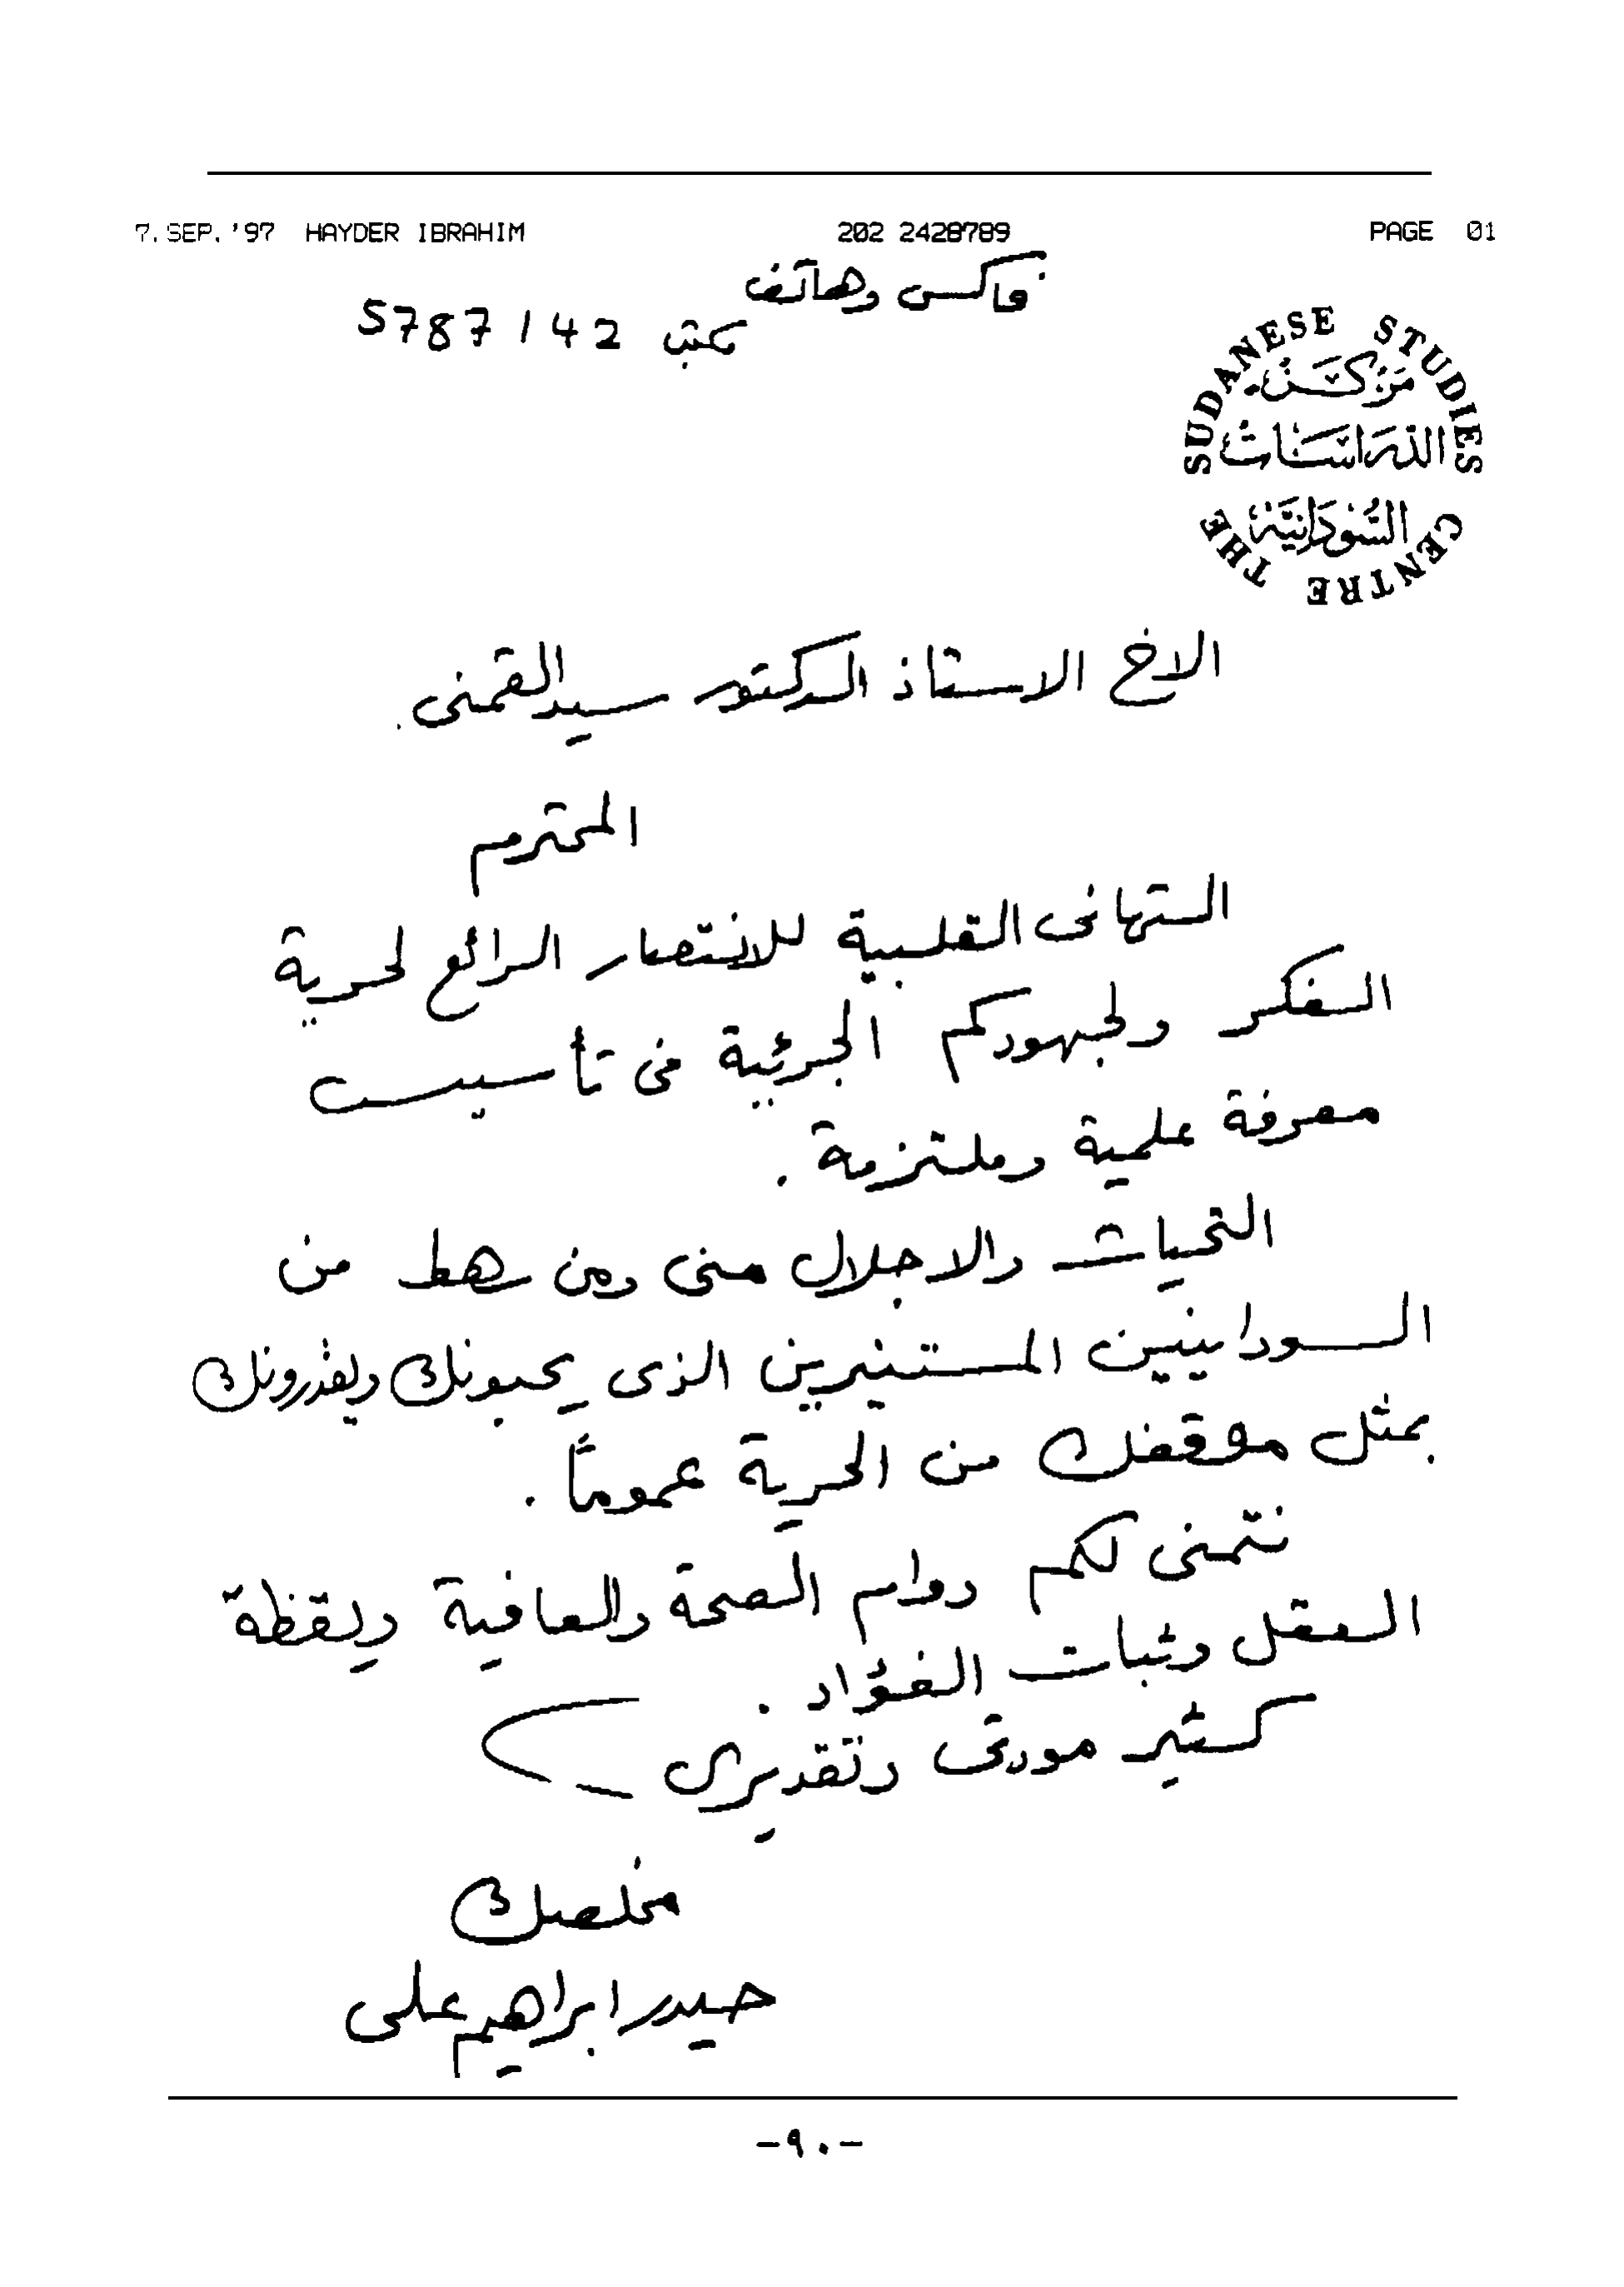 7. SEP. '97 HAYDER IBRAHIM 202 2428789 PAGE 01
فاكس وهاتف
مكتب 5787142
SUDANESE STUDIES
مركز
الدراسات
السودانية
THE CENTRE
الاخ الاستاذ الدكتور سيد القمنى.
المحترم
التهانى القلبية للانتصار الرائع لحرية
الفكر ولجهودكم الجرئية فى تأسيس
معرفة علمية وملتزمة .
التحيات والاجلال منى ومن رهط من
السودانيين المستنيرين الذى يحبونك ويقدرونك
بمثل موقفك من الحرية عموماً .
نتمنى لكم دوام الصحة والعافية ويقظة
العقل وثبات الفؤاد .
كثير مودتى وتقديرى
مخلصك
حيدر ابراهيم على
-٩٠-